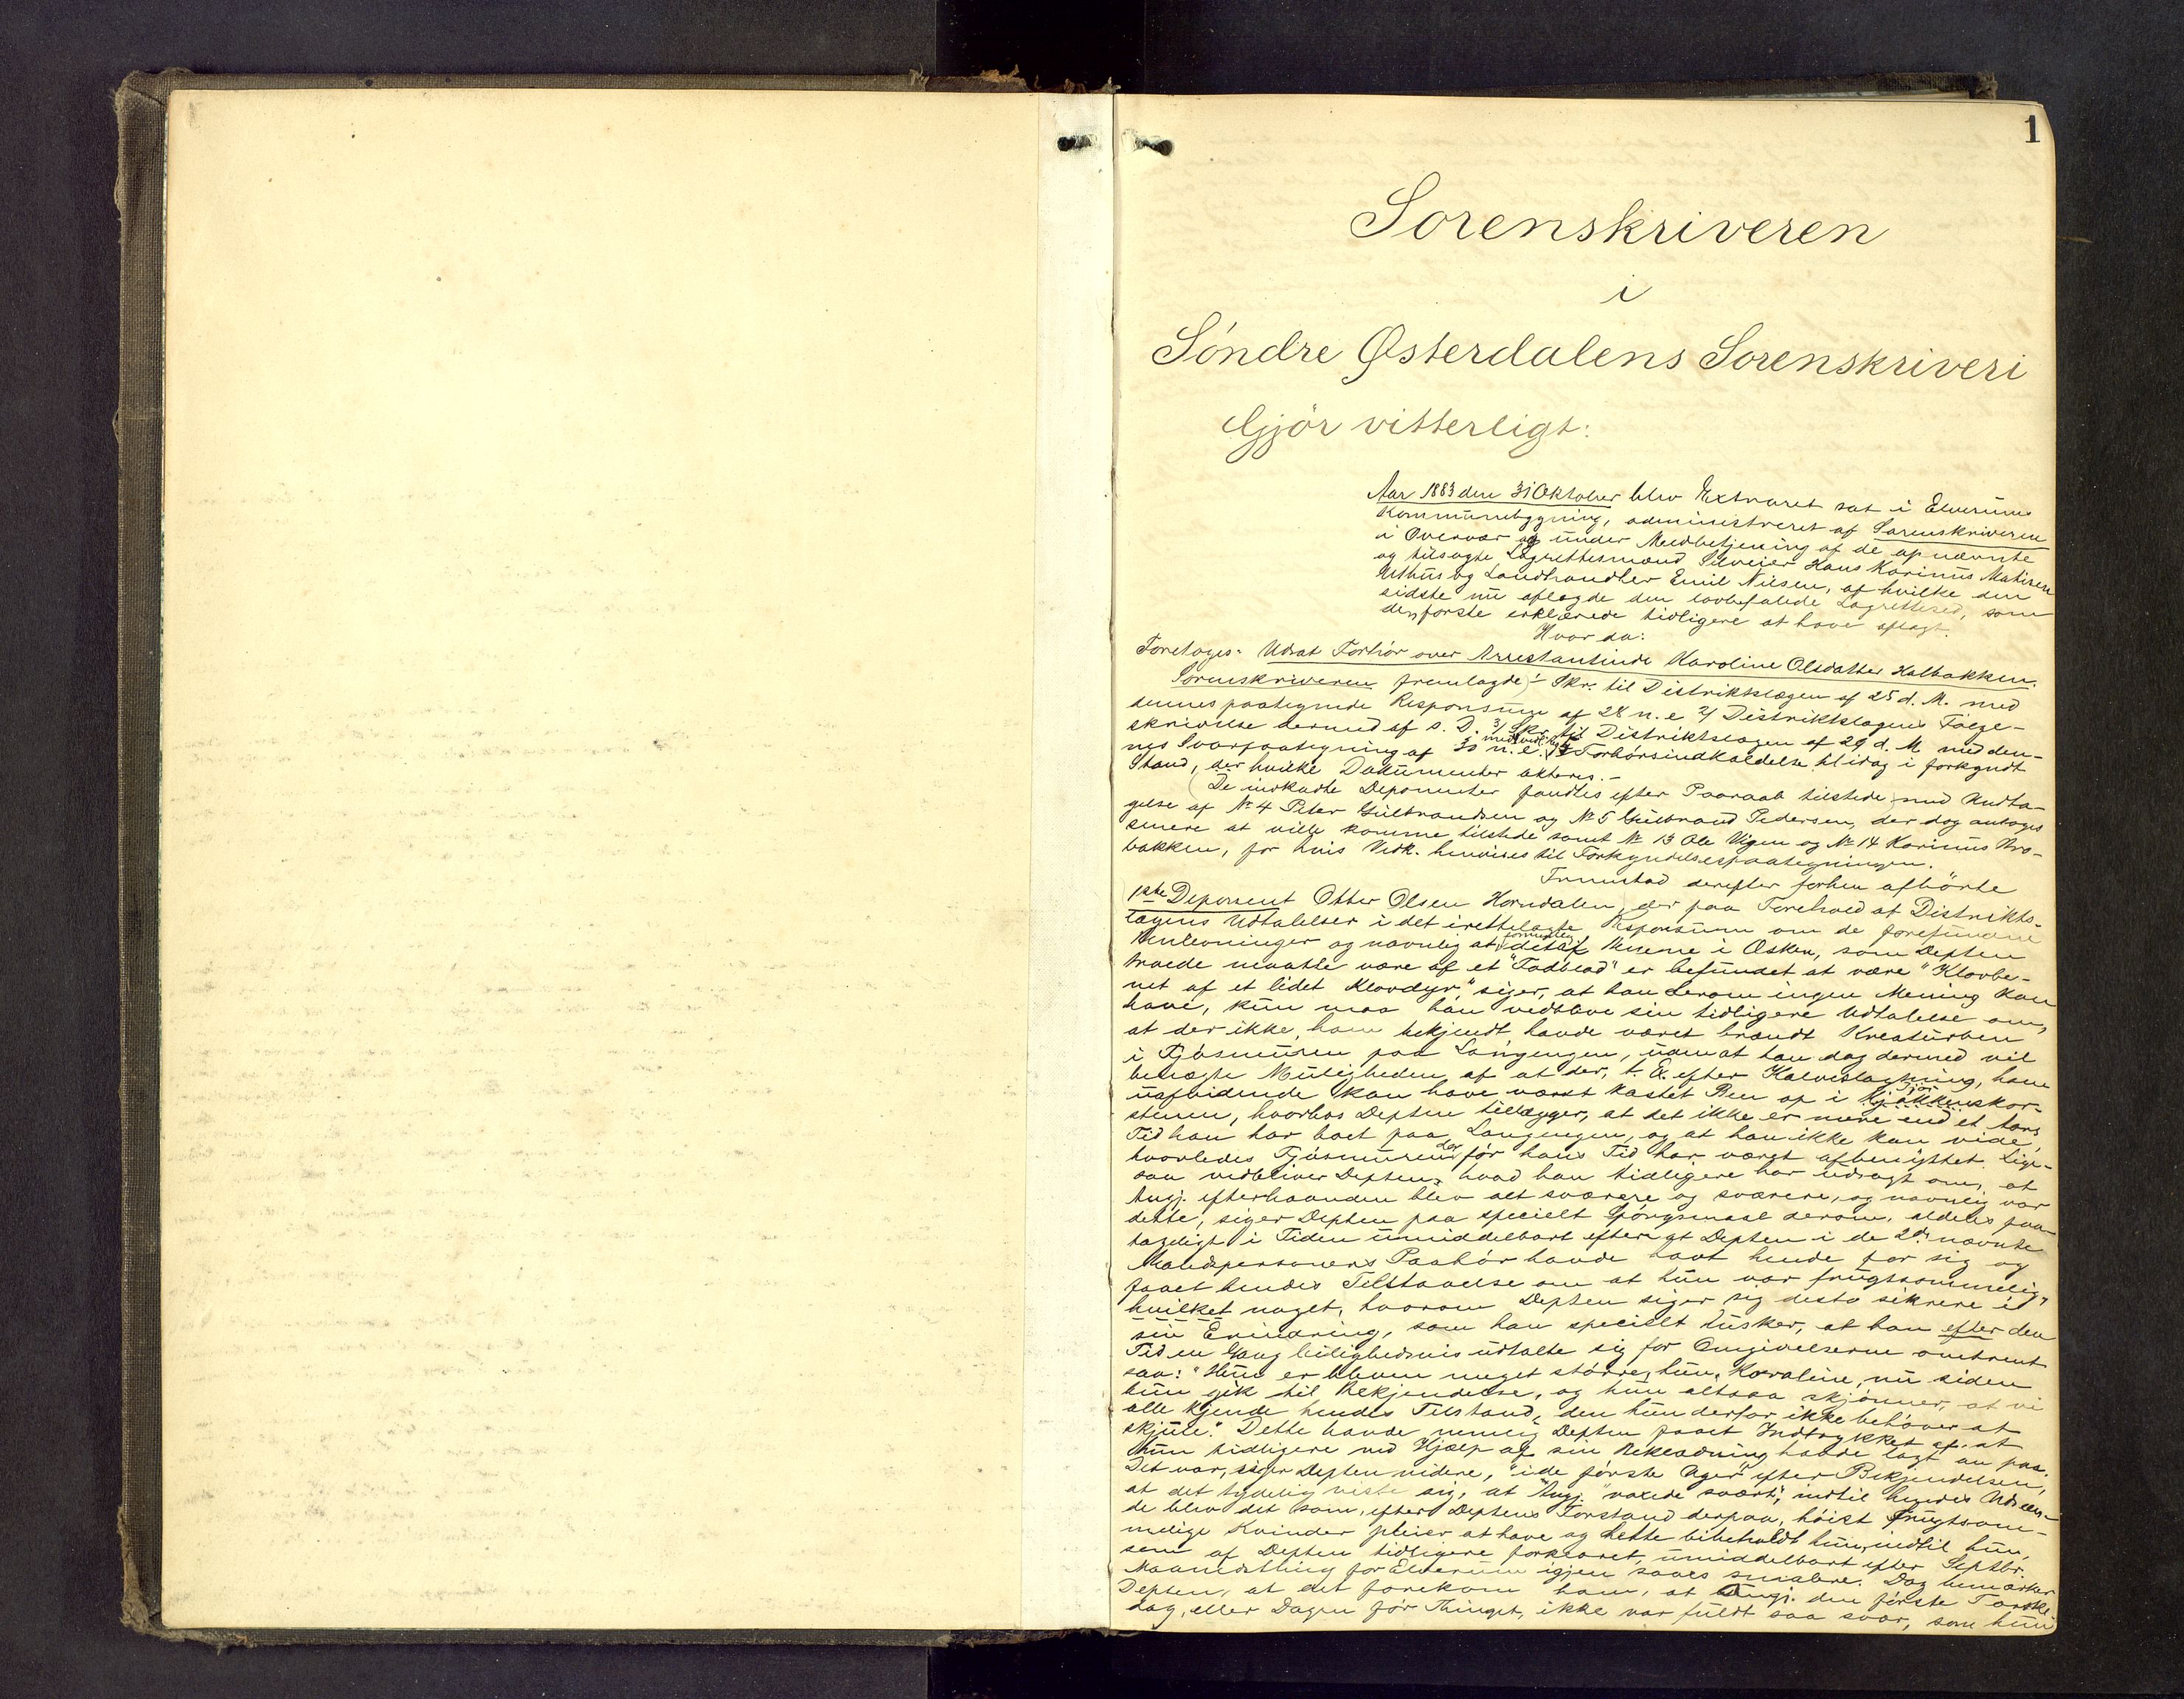 1
Sorenskriveren
i
Søndre Østerdalens Sorenskriveri
Gjör vitterligt:
Aar 1883 den 31 Oktober blev Extraret sat i Elverums
Kommunebygning, administreret af Sorenskriveren
i Overvær og under Medbetjening af de opnævnte
og tilsagte Lagrettesmænd Hans Karinus Mathisen
Uthus og Landhandler Emil Nilsen, af hvilke den
sidste nu aflagde den lovbefalede Lagretteseed, som
den første erklærede tidligere at have aflagt.
Hvor da:
Foretoges: Udsat Forhör over Arrestantinde Karoline Olsdatter Kalbakken.
Sorenskriveren fremlagde 1 Skr. til Distriktslægen af 25 d. M. med
dennes paategnede Responsum af 28 n. e. 2/ Distriktslægens Følge-
skrivelse dermed af s. D. 3/ Skr. til Distriktslægen af 29 d. M. med den-
nes Svarpaategning af 30 n. e. Forhørsindkaldelse til idag i forkyndt
Stand, der hvilke Dokumenter akteres.-
De indkaldte Deponenter fandtes efter Paaraab tilstede med Undta-
gelse af No 4 Peter Gulbrandsen og No 5 Gulbrand Pedersen, der dog antages
senere at ville komme tilstede samt No 13 Ole Vigen og No 14 Karinus
bakken, for hvis Vedk. henvises til Forkyndelsespaategningen.
Fremstod derefter forhen afhørte
1ste Deponent Otter Olsen Horndalen, der paa Forehold af Distrikts-
lægens Udtalelser i det irettelagte Responsum om de forefundne
Benlevninger og navnlig at formentlig det af Benene i Æsken, som Depten
troede maatte være af et "Fodblad" er befundet at være "Klovbe-
net af et lidet Klovdyr" siger, at han derom ingen Mening kan
have, kun maa han vedblive sin tidligere Udtalelse om,
at der ikke, ham bekjendt havde været brændt Kreaturben
i Fjøsmuren paa Langengen, uden at han dog dermed vil
benegte Muligheden af at der, t. Ex. efter Kalveslagtning, ham
uafvidende kan have været kastet Ben op i
stenen, hvorhos Depten tillægger, at det ikke er mere end et Aars
Tid han har boet paa Langengen, og at han ikke kan vide,
hvorledes Fjøsmuren der før hans Tid har været afbenyttet. Lige-
saa vedbliver Depten, hvad han tidligere har udsagt om, at
Angj. efterhaanden blev alt sværere og sværere, og navnlig var
dette, siger Depten paa specielt Spörgsmaal derom, aldeles paa-
tageligt i Tiden umiddelbart efter at Depten i de 2de nævnte
Mandspersoners Paahør havde havt hende for sig og
faaet hendes Tilstaaelse om at hun var frugtsommelig,
hvilket noget, hvorom Depten siger sig desto sikrere i
sin Erindring, som han specielt husker, at han efter den
Tid en Gang leilighedsvis udtalte sig for Omgivelserne omtrent
saa: "Hun er bleven meget større, hun, Karoline, nu siden
hun gik til Bekjendelse, og hun altsaa skjønner, at vi
alle kjende hendes Tilstand, den hun derfor ikke behøver at
skjule." Dette havde nemlig Depten faaet Indtrykket af, at
hun tidligere ved Hjælp af sin Beklædning havde lagt an paa.
Det var, siger Depten videre, "i de første Uger" efter Bekjendelsen,
at det tydelig viste sig, at Angj. "voxede svært", indtil hendes Udseen-
de blev det som, efter Deptens Forstand derpaa, høist frugtsom-
melige Kvinder pleier at have og dette bibeholdt hun, indtil hun,
som af Depten tidligere forklaret, umiddelbart efter Septbr.
Maanedsthing for Elverum igjen saaes smalere. Dog bemærker
Depten, at det forekom ham, at Angj. den første
dag, eller Dagen før Thinget, ikke var fuldt saa svær, som hun